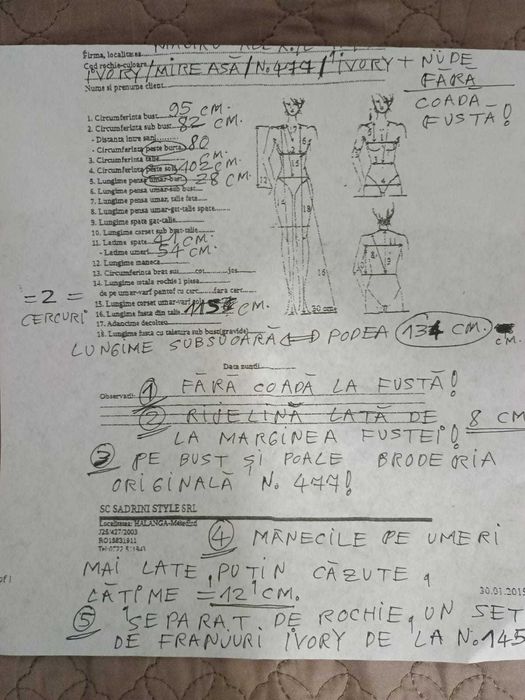 Firma, localitatea
Cod rochie-culoare IVORY/MIREASĂ/No 477/IVORY + NUDE
FĂRĂ
COADĂ
FUSTĂ!
Nume si prenume client
1. Circumferinta bust 95 CM.
2. Circumferinta sub bust 82 CM.
- Distanta intre sani
- Circumferinta peste burta 80 CM.
3. Circumferinta talie
4. Circumferinta peste sold 102 CM.
5. Lungime pensa umar-bust 28 CM.
6. Lungime pensa umar-sub bust
7. Lungime pensa umar, talie fata
8. Lungime pensa umar-gat-talie spate
9. Lungime spata gat-talie
10. Lungime corset sub brat-talie
11. Latime spate 41 CM.
- Latime umeri 54 CM.
12. Lungime maneca
13. Circumferinta brat sus cot jos
14. Lungime totala rochie 1 piesa
de pe umar-varf pantof cu cerc fara cerc
15. Lungime corset umar-varf
16. Lungime fusta din talie 115 CM.
17. Adancime decolteu
18. Lungime fusta cu taietura sub bust(gravide)
20 cm
=2=
CERCURI
LUNGIME SUBSUOARĂ <=> PODEA 134 CM.
Data nuntii
Observatii:
1 FĂRĂ COADĂ LA FUSTĂ!
2 RIJELINĂ LATĂ DE 8 CM
LA MARGINEA FUSTEI!
3 PE BUST ȘI POALE BRODERIA
ORIGINALĂ No 477!
SC SADRINI STYLE SRL
Localitatea: HALANGA-Mehedinti
J25/427/2003
RO15831911
4 MÂNECILE PE UMERI
MAI LATE, PUȚIN CĂZUTE,
LĂȚIME = 12 CM.
30.01.2015
5 SEPARAT DE ROCHIE, UN SET
DE FRANJURI IVORY DE LA No 145